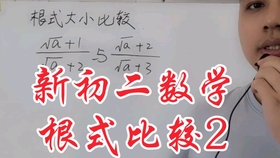 根式大小比较
√a+1 / √a+2 与 √a+2 / √a+3
新初二数学
根式比较2